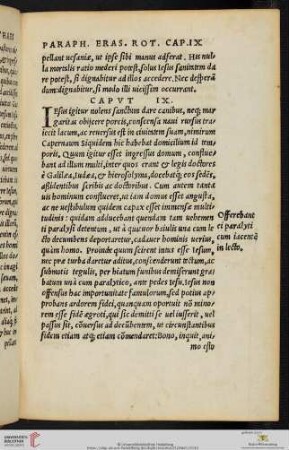 PARAPH. ERAS. ROT. CAP. IX
pellant uesaniæ, ut ipse sibi manus adferat. His nul
la mortalis ratio mederi potest, solus Iesus sanitatem da
re potest, si dignabitur ad illos accedere. Nec desperã
dum: dignabitur, si modo illi uicissim occurrant.
CAPVT IX.
IEsus igitur nolens sanctum dare canibus, neq; mar
garitas obijcere porcis, conscensa naui rursus tra
iecit lacum, ac reuersus est in ciuitatem suam, nimirum
Capernaum siquidem hic habebat domicilium id tem
poris. Quum igitur esset ingressus domum, conflue
bant ad illum multi, inter quos erant & legis doctores
è Galilæa, Iudæa, & Hierosolyma, docebatq; eos sedẽs,
assidentibus scribis ac doctoribus. Cum autem tanta
uis hominum conflueret, ut iam domus esset angusta,
ac ne uestibulum quidem capax esset immensæ multi
tudinis: quidam adducebant quendam tam uehemen
ti paralysi detentum, ut à quatuor baiulis una cum le
cto decumbens deportaretur, cadauer hominis uerius,
quàm homo. Proinde quum scirent intus esse Iesum,
nec præ turba daretur aditus, conscenderunt tectum, ac
submotis tegulis, per hiatum funibus demiserunt gra
batum unà cum paralytico, ante pedes Iesu. Iesus non
offensus hac importunitate famulorum, sed potius ap
probans ardorem fidei, quanquam oportuit nõ mino
rem esse fidẽ ægroti, qui sic demitti se uel iusserit, uel
passus sit, cõuersus ad decũbentem, ut circunstantibus
fidem etiam atq; etiam cõmendaret: Bono, inquit, ani-
mo esto
Offerebant
ei paralyti
cum iacentẽ
in lecto.